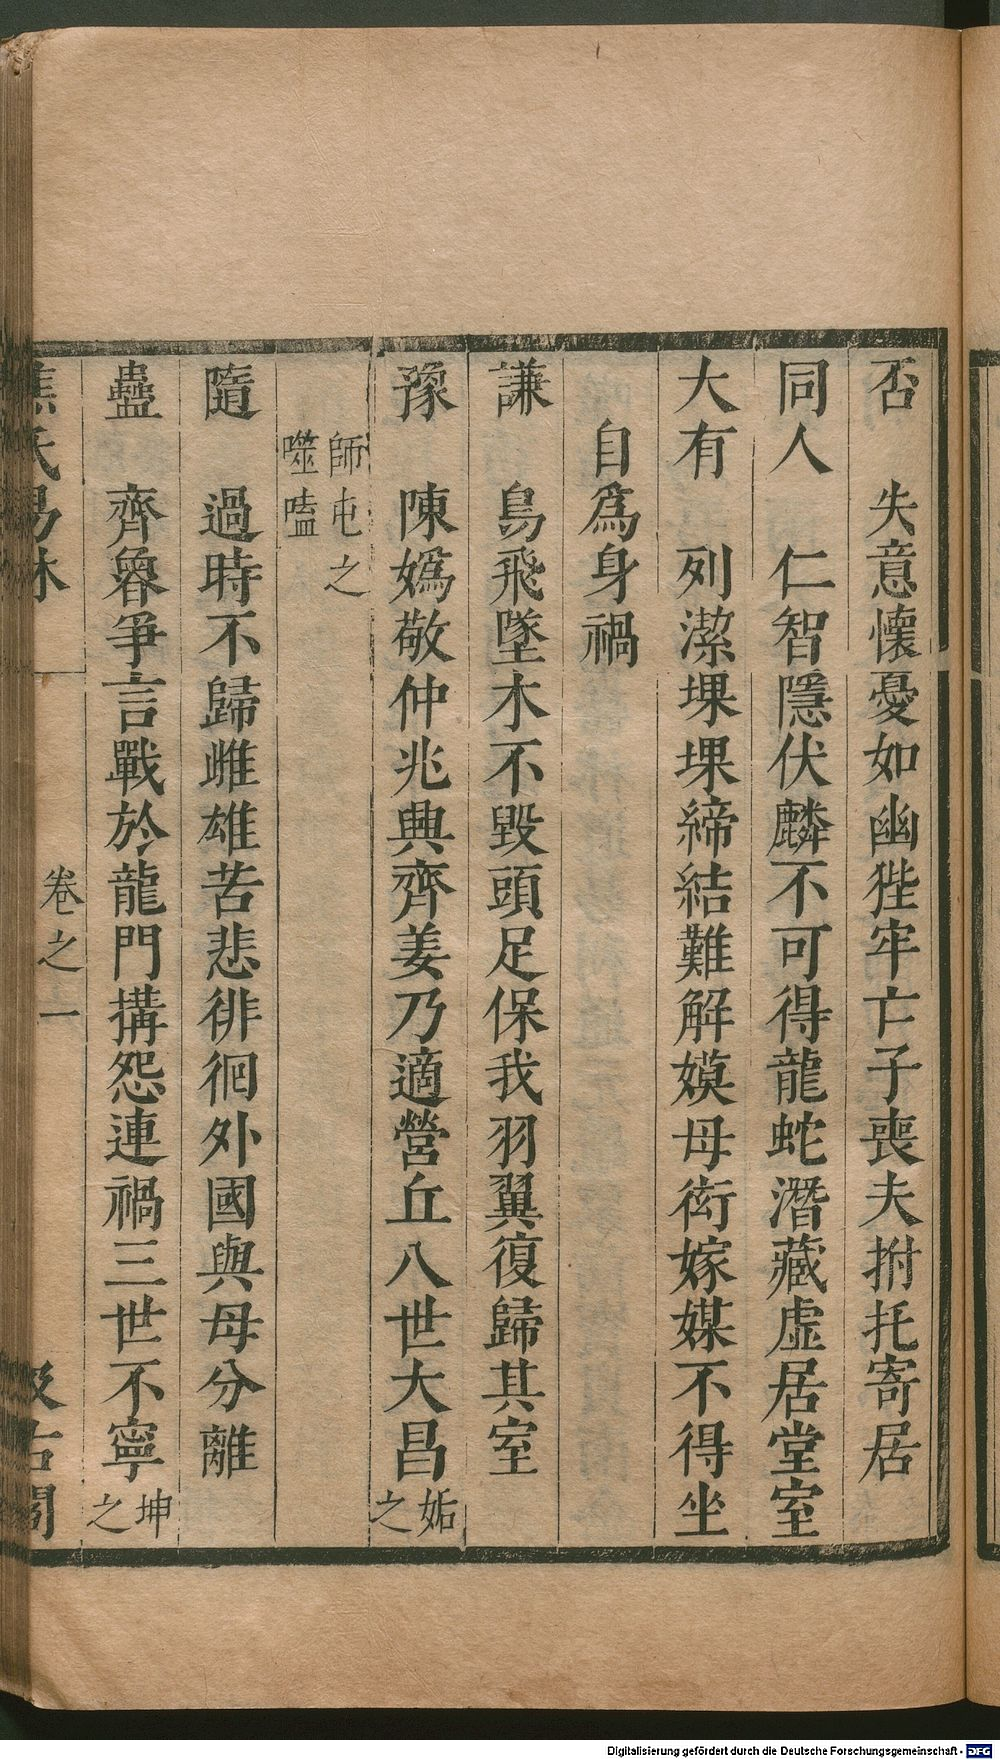 否　失意懷憂如幽狴牢亡子喪夫拊托寄居
同人　仁智隱伏麟不可得龍蛇潛藏虛居堂室
大有　列潔堁堁締結難解嫫母衒嫁媒不得坐
自爲身禍
謙　鳥飛墜木不毀頭足保我羽翼復歸其室
豫　陳嬀敬仲兆興齊姜乃適營丘八世大昌姤之
師屯之
噬嗑
隨　過時不歸雌雄苦悲徘徊外國與母分離
蠱　齊魯爭言戰於龍門搆怨連禍三世不寧坤之
焦氏易林　卷之一　汲古閣
Digitalisierung gefördert durch die Deutsche Forschungsgemeinschaft - DFG